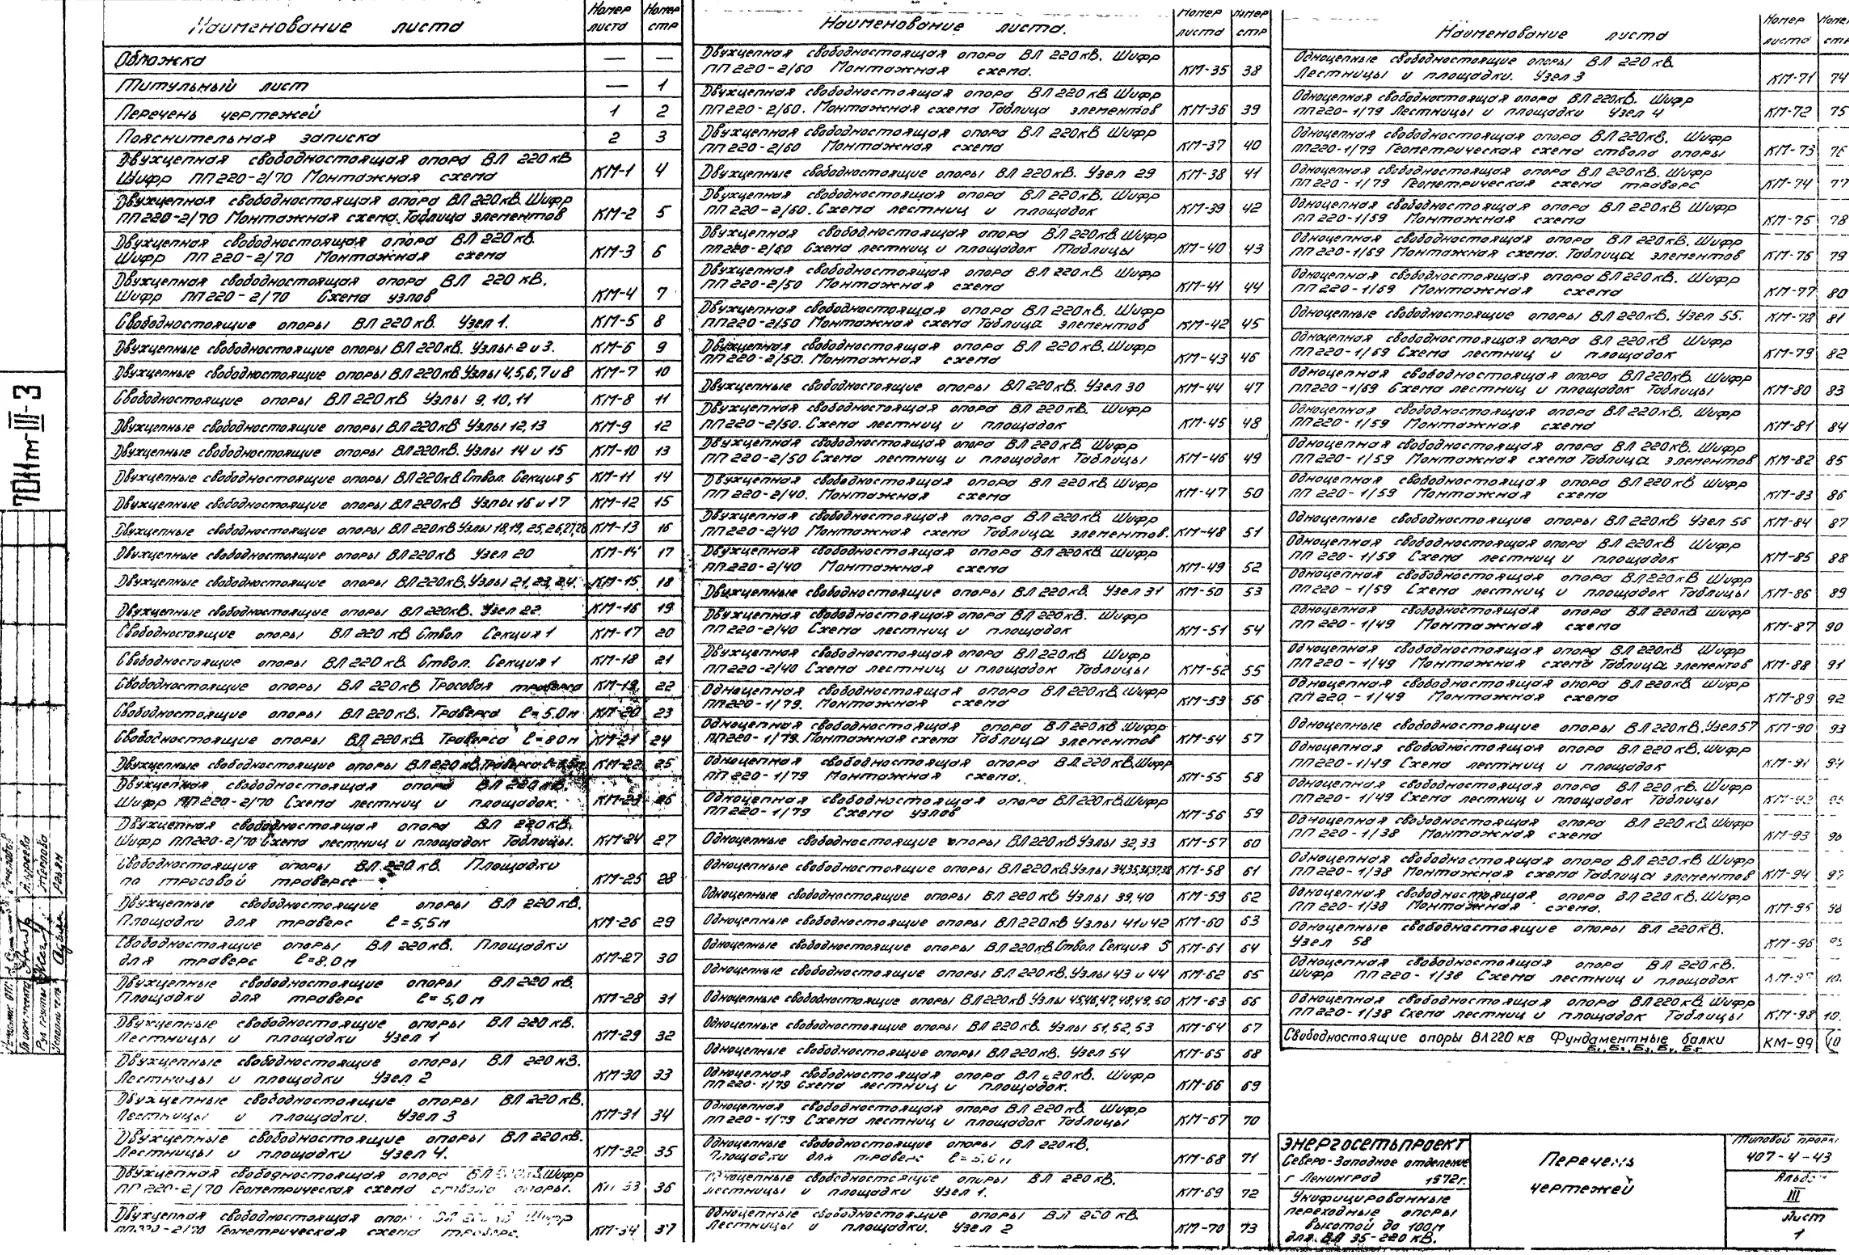 Наименование листа Номер листа Номер стр
Обложка — —
Титульный лист — 1
Перечень чертежей 1 2
Пояснительная записка 2 3
Двухцепная свободностоящая опора ВЛ 220кВ
Шифр ПП220-2/70 Монтажная схема КМ-1 4
Двухцепная свободностоящая опора ВЛ 220кВ. Шифр
ПП220-2/70 Монтажная схема. Таблица элементов КМ-2 5
Двухцепная свободностоящая опора ВЛ 220кВ.
Шифр ПП220-2/70 Монтажная схема КМ-3 6
Двухцепная свободностоящая опора ВЛ 220 кВ.
Шифр ПП220-2/70 Схема узлов КМ-4 7
Свободностоящие опоры ВЛ 220кВ. Узел 1. КМ-5 8
Двухцепные свободностоящие опоры ВЛ 220кВ. Узлы 2 и 3. КМ-6 9
Двухцепные свободностоящие опоры ВЛ 220кВ Узлы 4,5,6,7 и 8 КМ-7 10
Свободностоящие опоры ВЛ 220кВ Узлы 9, 10, 11 КМ-8 11
Двухцепные свободностоящие опоры ВЛ 220кВ Узлы 12, 13 КМ-9 12
Двухцепные свободностоящие опоры ВЛ 220кВ. Узлы 14 и 15 КМ-10 13
Двухцепные свободностоящие опоры ВЛ 220кВ. Ствол. Секция 5 КМ-11 14
Двухцепные свободностоящие опоры ВЛ 220кВ Узлы 16 и 17 КМ-12 15
Двухцепные свободностоящие опоры ВЛ 220кВ Узлы 18,19, 25,26,27,28 КМ-13 16
Двухцепные свободностоящие опоры ВЛ 220кВ Узел 20 КМ-14 17
Двухцепные свободностоящие опоры ВЛ 220кВ. Узлы 21, 23, 24. КМ-15 18
Двухцепные свободностоящие опоры ВЛ 220кВ. Узел 22 КМ-16 19
Свободностоящие опоры ВЛ 220 кВ Ствол Секция 1 КМ-17 20
Свободностоящие опоры ВЛ 220кВ. Ствол. Секция 1 КМ-18 21
Свободностоящие опоры ВЛ 220кВ Тросовая траверса КМ-19 22
Свободностоящие опоры ВЛ 220кВ. Траверса ℓ=5.0м КМ-20 23
Свободностоящие опоры ВЛ 220кВ Траверса ℓ=8.0м КМ-21 24
Двухцепные свободностоящие опоры ВЛ 220кВ. Траверса КМ-22 25
Двухцепная свободностоящая опора ВЛ 220кВ.
Шифр ПП220-2/70 Схема лестниц и площадок. КМ-23 26
Двухцепная свободностоящая опора ВЛ 220кВ.
Шифр ПП220-2/70 Схема лестниц и площадок Таблицы. КМ-24 27
Свободностоящие опоры ВЛ 220 кВ. Площадки
по тросовой траверсе КМ-25 28
Двухцепные свободностоящие опоры ВЛ 220 кВ.
Площадки для траверс ℓ=5,5м КМ-26 29
Свободностоящие опоры ВЛ 220кВ. Площадки
для траверс ℓ=8.0м КМ-27 30
Двухцепные свободностоящие опоры ВЛ 220 кВ.
Площадки для траверс ℓ=5,0м КМ-28 31
Двухцепные свободностоящие опоры ВЛ 220 кВ.
Лестницы и площадки Узел 1 КМ-29 32
Двухцепные свободностоящие опоры ВЛ 220кВ.
Лестницы и площадки Узел 2 КМ-30 33
Двухцепные свободностоящие опоры ВЛ 220кВ.
Лестницы и площадки. Узел 3 КМ-31 34
Двухцепные свободностоящие опоры ВЛ 220кВ.
Лестницы и площадки Узел 4. КМ-32 35
Двухцепная свободностоящая опора Шифр
ПП220-2/70 Геометрическая схема ствола опоры. КМ-33 36
Двухцепная свободностоящая опора Шифр
ПП220-2/70 Геометрическая схема траверс. КМ-34 37
Наименование листа. Номер листа Номер стр
Двухцепная свободностоящая опора ВЛ 220кВ. Шифр
ПП220-2/60 Монтажная схема. КМ-35 38
Двухцепная свободностоящая опора ВЛ 220кВ Шифр
ПП220-2/60. Монтажная схема Таблица элементов КМ-36 39
Двухцепная свободностоящая опора ВЛ 220кВ Шифр
ПП220-2/60 Монтажная схема КМ-37 40
Двухцепные свободностоящие опоры ВЛ 220кВ. Узел 29 КМ-38 41
Двухцепная свободностоящая опора ВЛ 220кВ. Шифр
ПП220-2/60. Схема лестниц и площадок КМ-39 42
Двухцепная свободностоящая опора ВЛ 220кВ. Шифр
ПП220-2/60 Схема лестниц и площадок Таблицы КМ-40 43
Двухцепная свободностоящая опора ВЛ 220кВ Шифр
ПП220-2/50 Монтажная схема КМ-41 44
Двухцепная свободностоящая опора ВЛ 220кВ. Шифр
ПП220-2/50 Монтажная схема Таблица элементов КМ-42 45
Двухцепная свободностоящая опора ВЛ 220кВ. Шифр
ПП220-2/50. Монтажная схема КМ-43 46
Двухцепные свободностоящие опоры ВЛ 220кВ. Узел 30 КМ-44 47
Двухцепная свободностоящая опора ВЛ 220кВ. Шифр
ПП220-2/50. Схема лестниц и площадок КМ-45 48
Двухцепная свободностоящая опора ВЛ 220кВ Шифр
ПП220-2/50 Схема лестниц и площадок Таблицы КМ-46 49
Двухцепная свободностоящая опора ВЛ 220кВ Шифр
ПП220-2/40. Монтажная схема КМ-47 50
Двухцепная свободностоящая опора ВЛ 220кВ. Шифр
ПП220-2/40 Монтажная схема Таблица элементов. КМ-48 51
Двухцепная свободностоящая опора ВЛ 220кВ Шифр
ПП220-2/40 Монтажная схема КМ-49 52
Двухцепные свободностоящие опоры ВЛ 220кВ. Узел 31 КМ-50 53
Двухцепная свободностоящая опора ВЛ 220кВ. Шифр
ПП220-2/40 Схема лестниц и площадок КМ-51 54
Двухцепная свободностоящая опора ВЛ 220кВ Шифр
ПП220-2/40 Схема лестниц и площадок Таблицы КМ-52 55
Одноцепная свободностоящая опора ВЛ 220кВ. Шифр
ПП220-1/79. Монтажная схема КМ-53 56
Одноцепная свободностоящая опора ВЛ 220кВ Шифр
ПП220-1/79. Монтажная схема Таблица элементов КМ-54 57
Одноцепная свободностоящая опора ВЛ 220кВ. Шифр
ПП220-1/79 Монтажная схема. КМ-55 58
Одноцепная свободностоящая опора ВЛ 220кВ. Шифр
ПП220-1/79 Схема узлов КМ-56 59
Одноцепные свободностоящие опоры ВЛ 220кВ Узлы 32, 33 КМ-57 60
Одноцепные свободностоящие опоры ВЛ 220кВ. Узлы 34,35,36,37,38 КМ-58 61
Одноцепные свободностоящие опоры ВЛ 220 кВ Узлы 39, 40 КМ-59 62
Одноцепные свободностоящие опоры ВЛ 220кВ Узлы 41 и 42 КМ-60 63
Одноцепные свободностоящие опоры ВЛ 220кВ. Ствол Секция 5 КМ-61 64
Одноцепные свободностоящие опоры ВЛ 220кВ. Узлы 43 и 44 КМ-62 65
Одноцепные свободностоящие опоры ВЛ 220кВ Узлы 45,46,47,48,49,50 КМ-63 66
Одноцепные свободностоящие опоры ВЛ 220кВ. Узлы 51, 52, 53 КМ-64 67
Одноцепные свободностоящие опоры ВЛ 220кВ. Узел 54 КМ-65 68
Одноцепная свободностоящая опора ВЛ 220кВ. Шифр
ПП220-1/79 Схема лестниц и площадок. КМ-66 69
Одноцепная свободностоящая опора ВЛ 220кВ. Шифр
ПП220-1/79 Схема лестниц и площадок Таблицы КМ-67 70
Одноцепные свободностоящие опоры ВЛ 220кВ.
Площадки для траверс ℓ=5.0м КМ-68 71
Одноцепные свободностоящие опоры ВЛ 220кВ.
Лестницы и площадки Узел 1. КМ-69 72
Одноцепные свободностоящие опоры ВЛ 220 кВ.
Лестницы и площадки. Узел 2 КМ-70 73
Наименование листа Номер листа Номер стр
Одноцепные свободностоящие опоры ВЛ 220кВ.
Лестницы и площадки. Узел 3 КМ-71 74
Одноцепная свободностоящая опора ВЛ 220кВ. Шифр
ПП220-1/79 Лестницы и площадки Узел 4 КМ-72 75
Одноцепная свободностоящая опора ВЛ 220кВ. Шифр
ПП220-1/79 Геометрическая схема ствола опоры КМ-73 76
Одноцепная свободностоящая опора ВЛ 220кВ. Шифр
ПП220-1/79 Геометрическая схема траверс КМ-74 77
Одноцепная свободностоящая опора ВЛ 220кВ Шифр
ПП220-1/69 Монтажная схема КМ-75 78
Одноцепная свободностоящая опора ВЛ 220кВ. Шифр
ПП220-1/69 Монтажная схема. Таблица элементов КМ-76 79
Одноцепная свободностоящая опора ВЛ 220кВ. Шифр
ПП220-1/69 Монтажная схема КМ-77 80
Одноцепные свободностоящие опоры ВЛ 220кВ. Узел 55. КМ-78 81
Одноцепная свободностоящая опора ВЛ 220кВ Шифр
ПП220-1/69 Схема лестниц и площадок КМ-79 82
Одноцепная свободностоящая опора ВЛ 220кВ. Шифр
ПП220-1/69 Схема лестниц и площадок Таблицы КМ-80 83
Одноцепная свободностоящая опора ВЛ 220кВ. Шифр
ПП220-1/59 Монтажная схема КМ-81 84
Одноцепная свободностоящая опора ВЛ 220кВ. Шифр
ПП220-1/59 Монтажная схема Таблица элементов КМ-82 85
Одноцепная свободностоящая опора ВЛ 220кВ Шифр
ПП220-1/59 Монтажная схема КМ-83 86
Одноцепные свободностоящие опоры ВЛ 220кВ Узел 56 КМ-84 87
Одноцепная свободностоящая опора ВЛ 220кВ Шифр
ПП220-1/59 Схема лестниц и площадок КМ-85 88
Одноцепная свободностоящая опора ВЛ 220кВ Шифр
ПП220-1/59 Схема лестниц и площадок Таблицы КМ-86 89
Одноцепная свободностоящая опора ВЛ 220кВ Шифр
ПП220-1/49 Монтажная схема КМ-87 90
Одноцепная свободностоящая опора ВЛ 220кВ Шифр
ПП220-1/49 Монтажная схема Таблица элементов КМ-88 91
Одноцепная свободностоящая опора ВЛ 220кВ Шифр
ПП220-1/49 Монтажная схема КМ-89 92
Одноцепные свободностоящие опоры ВЛ 220кВ. Узел 57 КМ-90 93
Одноцепная свободностоящая опора ВЛ 220кВ. Шифр
ПП220-1/49 Схема лестниц и площадок КМ-91 94
Одноцепная свободностоящая опора ВЛ 220кВ. Шифр
ПП220-1/49 Схема лестниц и площадок Таблицы КМ-92 95
Одноцепная свободностоящая опора ВЛ 220кВ. Шифр
ПП220-1/38 Монтажная схема КМ-93 96
Одноцепная свободностоящая опора ВЛ 220кВ Шифр
ПП220-1/38 Монтажная схема Таблица элементов КМ-94 97
Одноцепная свободностоящая опора ВЛ 220кВ. Шифр
ПП220-1/38 Монтажная схема. КМ-95 98
Одноцепные свободностоящие опоры ВЛ 220кВ.
Узел 58 КМ-96
Одноцепная свободностоящая опора ВЛ 220кВ.
Шифр ПП220-1/38 Схема лестниц и площадок КМ-97
Одноцепная свободностоящая опора ВЛ 220кВ Шифр
ПП220-1/38 Схема лестниц и площадок Таблицы КМ-98
Свободностоящие опоры ВЛ 220 кв Фундаментные балки КМ-99
Б₁, Б₂, Б₃, Б₄, Б₅
ЭНЕРГОСЕТЬПРОЕКТ
Северо-Западное отделение
г Ленинград 1972г.
Унифицированные
переходные опоры
высотой до 100м
для ВЛ 35-220 кВ.
Перечень
чертежей
Типовой проект
407-4-43
Альбом
III
Лист
1
7041тм-III-3